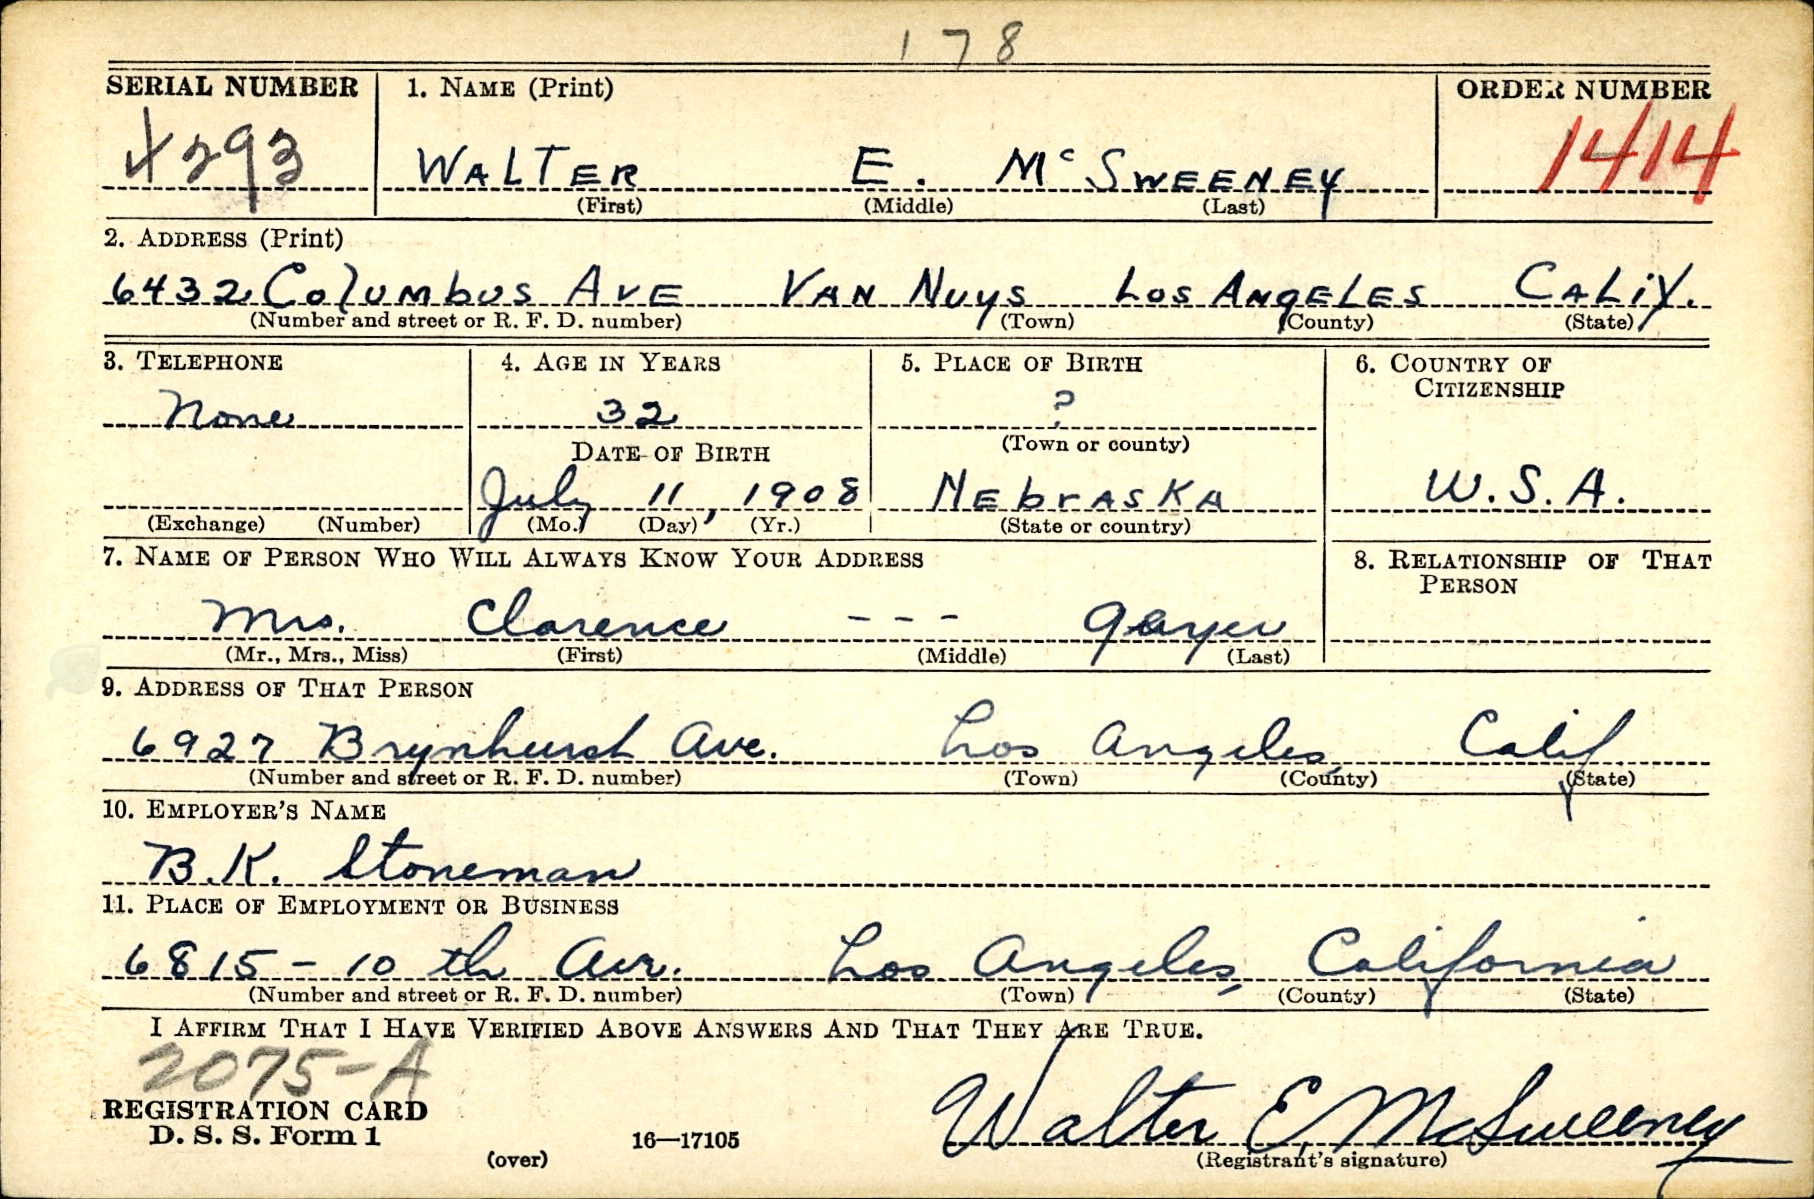 178
SERIAL NUMBER 1. NAME (Print) ORDER NUMBER
4293 WALTER E. McSWEENEY 1414
(First) (Middle) (Last)
2. ADDRESS (Print)
6432 Columbus AVE VAN Nuys Los ANgELES CALif.
(Number and street or R. F. D. number) (Town) (County) (State)
3. TELEPHONE 4. AGE IN YEARS 5. PLACE OF BIRTH 6. COUNTRY OF
CITIZENSHIP
None 32 ?
DATE OF BIRTH (Town or county)
July 11, 1908 NEbrASKA U.S.A.
(Exchange) (Number) (Mo.) (Day) (Yr.) (State or country)
7. NAME OF PERSON WHO WILL ALWAYS KNOW YOUR ADDRESS 8. RELATIONSHIP OF THAT
PERSON
Mrs. Clarence - - - Gayer
(Mr., Mrs., Miss) (First) (Middle) (Last)
9. ADDRESS OF THAT PERSON
6927 Brynhurst Ave. Los Angeles, Calif
(Number and street or R. F. D. number) (Town) (County) (State)
10. EMPLOYER'S NAME
B.K. Stoneman
11. PLACE OF EMPLOYMENT OR BUSINESS
6815 - 10 th Ave. Los Angeles, California
(Number and street or R. F. D. number) (Town) (County) (State)
I AFFIRM THAT I HAVE VERIFIED ABOVE ANSWERS AND THAT THEY ARE TRUE.
2075-A
REGISTRATION CARD
D. S. S. Form 1 Walter E. McSweeney
(over) 16—17105 (Registrant's signature)